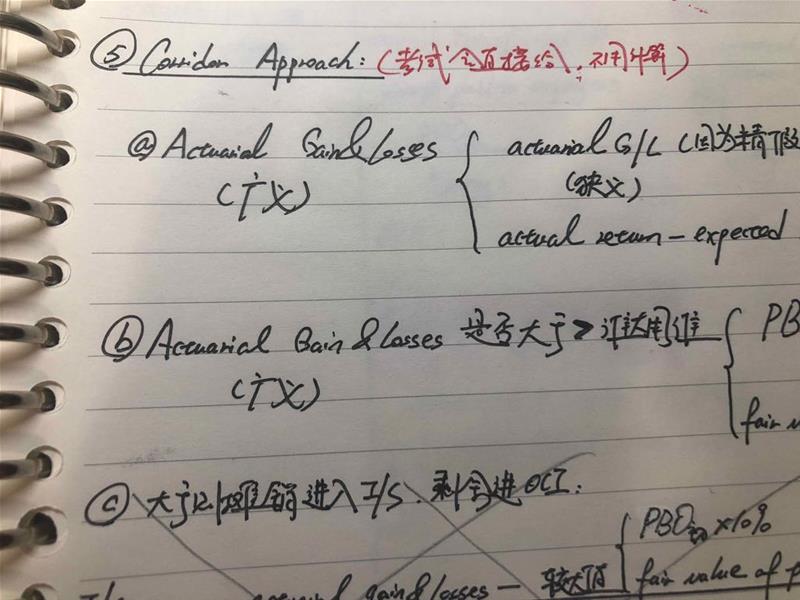 ⑤ Corridor Approach: (考试会直接给, 不用计算)
ⓐ Actuarial Gain & losses { actuarial G/L (因为精算假
(广义) (狭义)
actual return - expected
ⓑ Actuarial Gain & losses 是否大于 > 谁大用谁 { PB
(广义)
fair v
ⓒ 大于记入摊销进入 I/S. 剩余进 OCI:
PBO初 ×10%
actuarial gain & losses - 较大值 { fair value of p